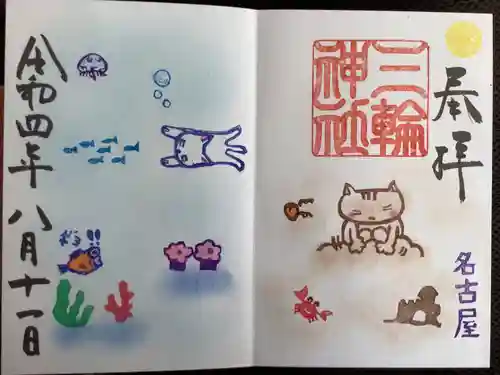 奉拝
三輪
神社
名古屋
令和四年 八月十一日